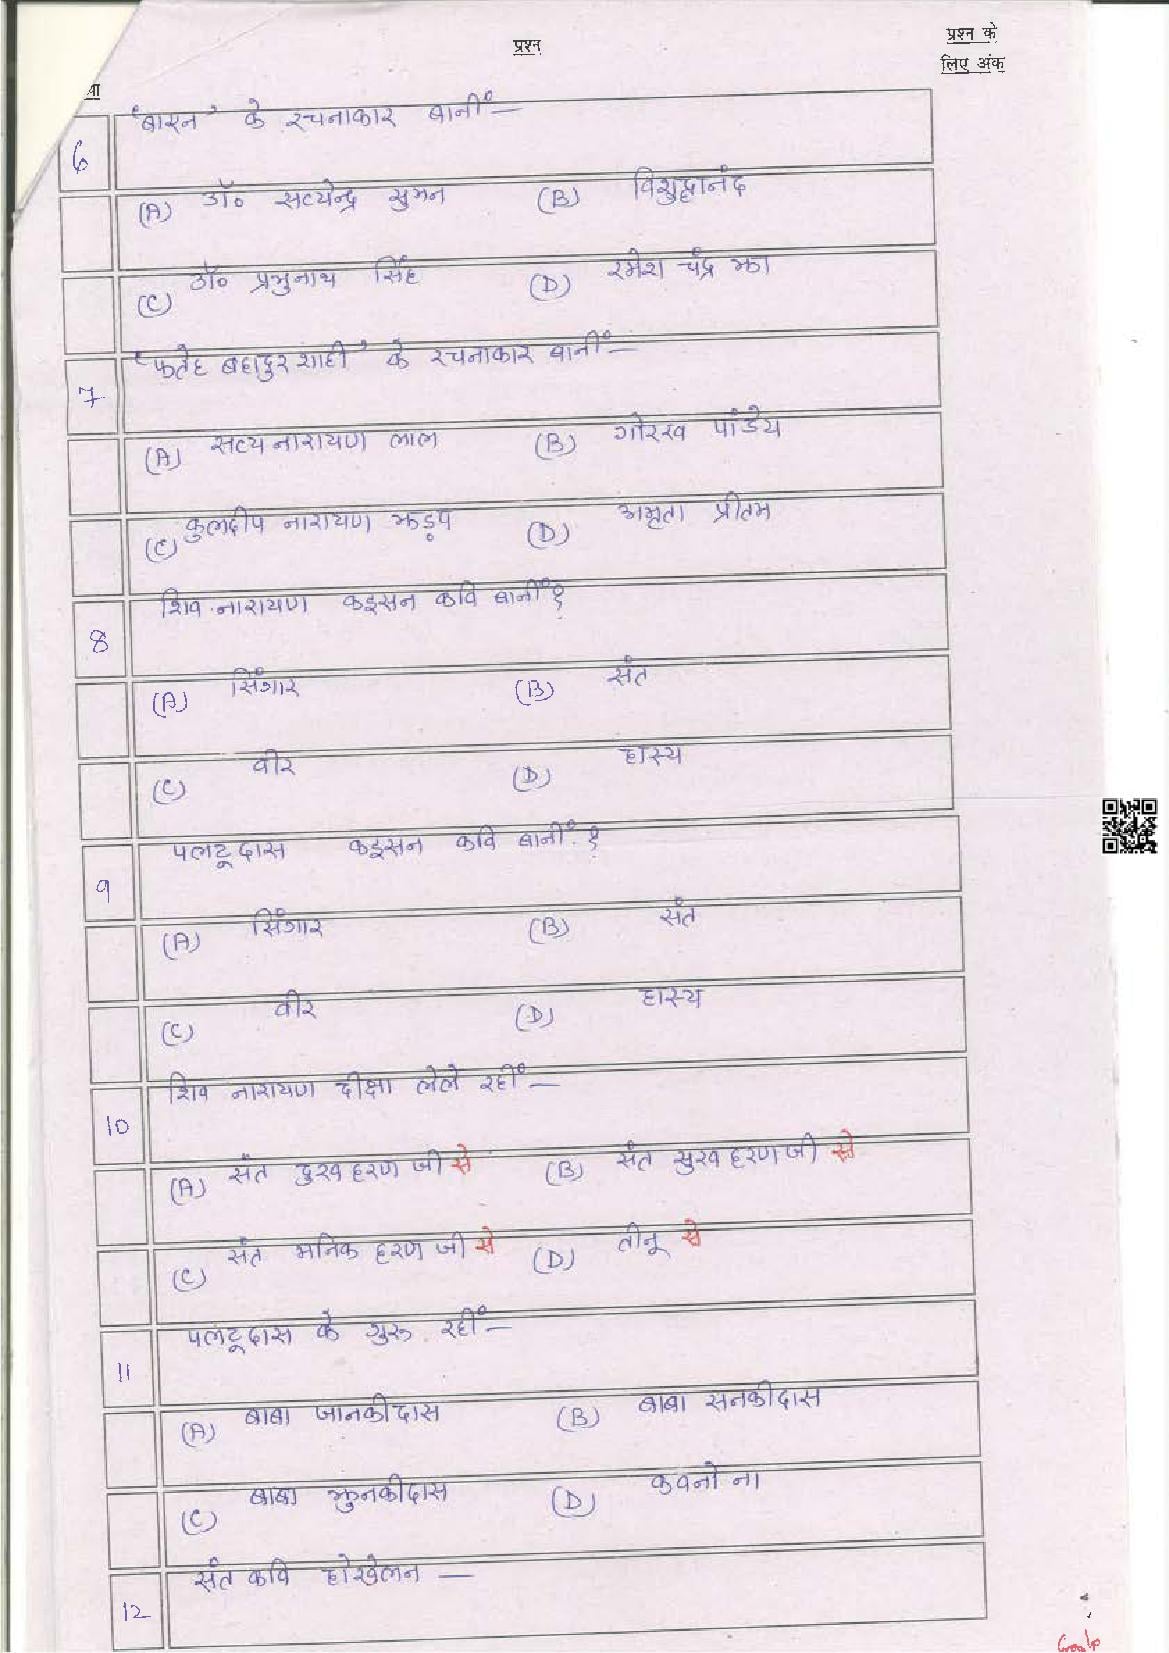 प्रश्न
प्रश्न के
लिए अंक
6 'बारन' के रचनाकार बानीं —
(A) डॉ० सत्येन्द्र सुमन (B) विशुद्धानंद
(C) डॉ० प्रभुनाथ सिंह (D) रमेश चंद्र झा
7 'फतेह बहादुर शाही' के रचनाकार बानीं —
(A) सत्य नारायण लाल (B) गोरख पांडेय
(C) कुलदीप नारायण झड़प (D) अमृता प्रीतम
8 शिव नारायण कइसन कवि बानीं ?
(A) सिंगार (B) संत
(C) वीर (D) हास्य
9 पलटू दास कइसन कवि बानीं ?
(A) सिंगार (B) संत
(C) वीर (D) हास्य
10 शिव नारायण दीक्षा लेले रहीं —
(A) संत दुख हरण जी से (B) संत सुख हरण जी से
(C) संत मनिक हरण जी से (D) तीनू से
11 पलटू दास के गुरु रहीं —
(A) बाबा जानकीदास (B) बाबा सनकीदास
(C) बाबा झुनकीदास (D) कवनो ना
12 संत कवि होखेलन —